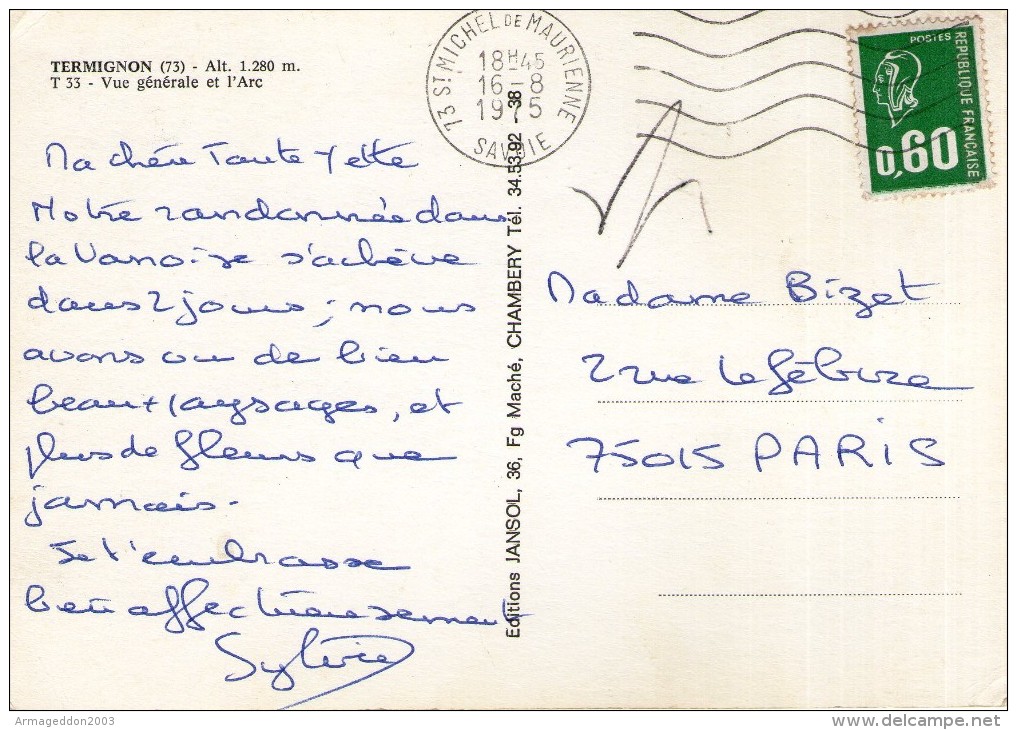 TERMIGNON (73) - Alt. 1.280 m.
T 33 - Vue générale et l'Arc
73 ST MICHEL DE MAURIENNE
18H45
16-8
1975
SAVOIE
POSTES
REPUBLIQUE FRANÇAISE
0,60
Ma chère Tante Yette
Notre randonnée dans
la Vanoise s'achève
dans 2 jours ; nous
avons vu de bien
beaux paysages, et
plus de fleurs que
jamais.
Je t'embrasse
bien affectueusement
Sylvie
Editions JANSOL, 36, Fg Maché, CHAMBERY Tél. 34.53.92 - 38
Madame Bizet
2 rue Lefébvre
75015 PARIS
Armageddon2003
www.delcampe.net